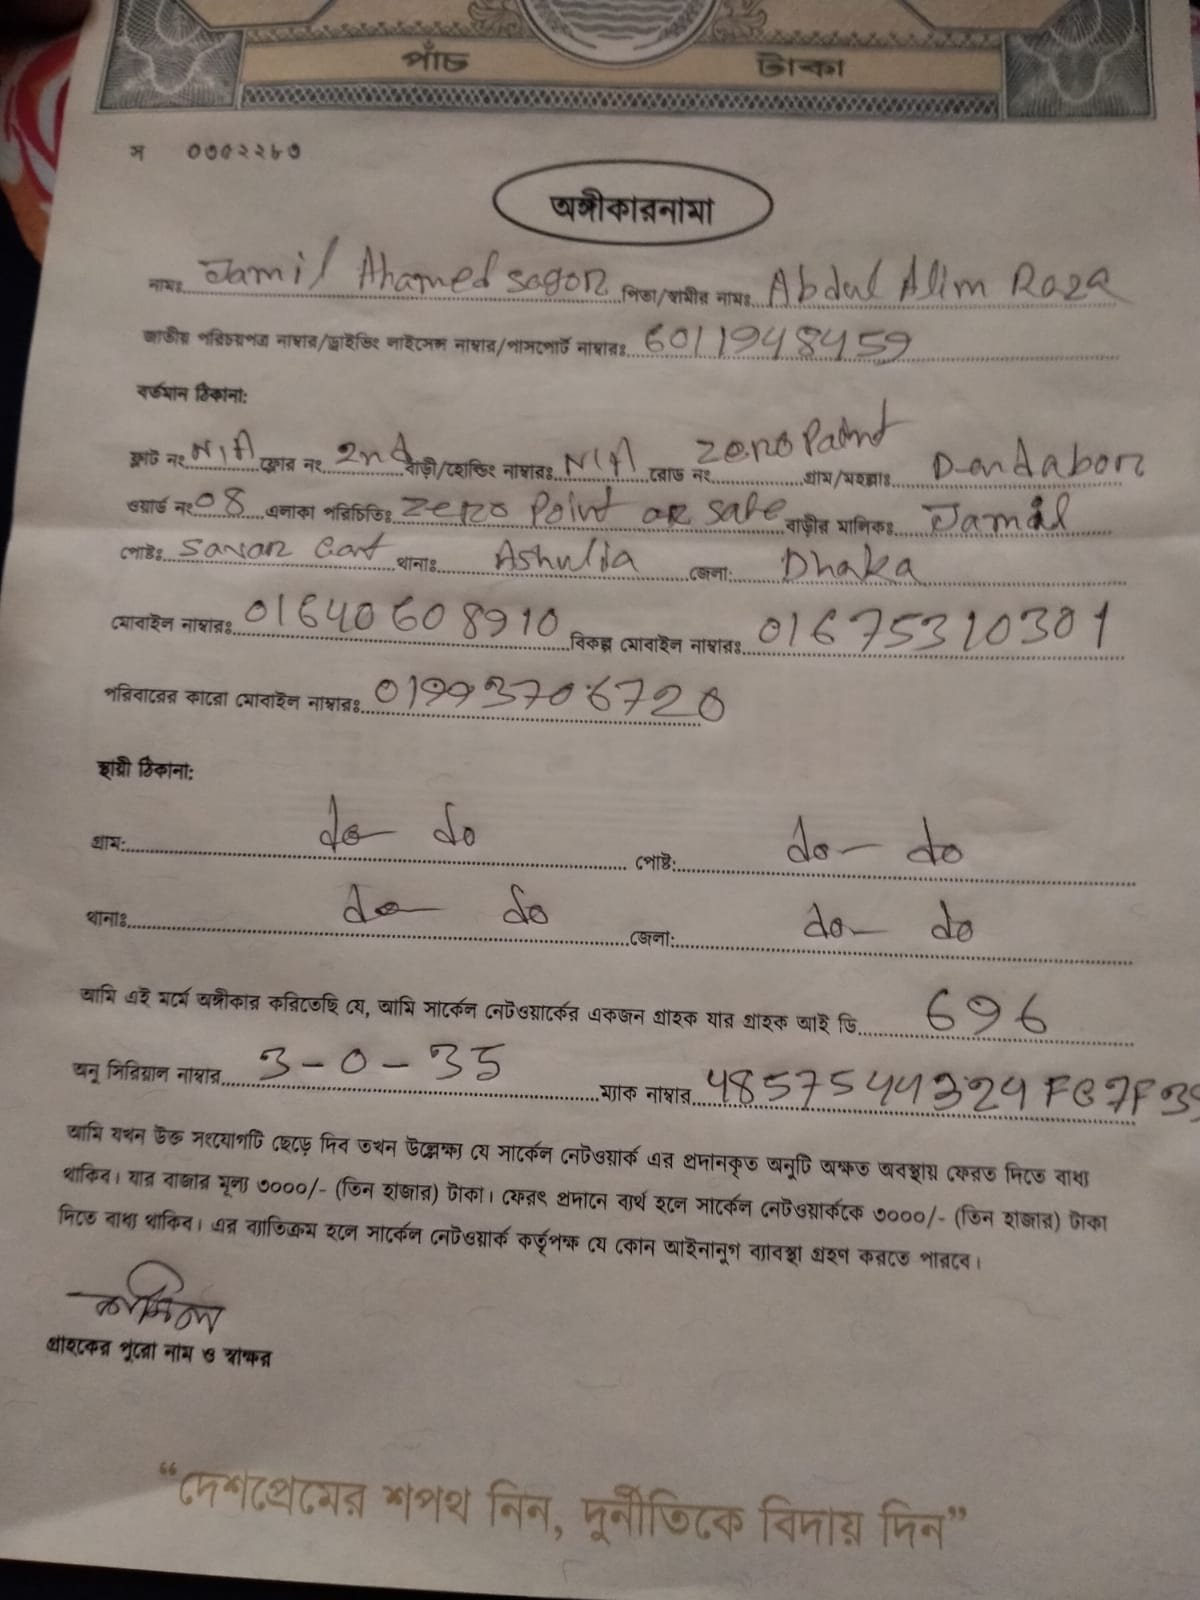 পাঁচ টাকা
স ০৩৫২২৮৩
অঙ্গীকারনামা
নামঃ Jamil Ahamed Sagor পিতা/স্বামীর নামঃ Abdul Alim Raza
জাতীয় পরিচয়পত্র নাম্বার/ড্রাইভিং লাইসেন্স নাম্বার/পাসপোর্ট নাম্বারঃ 6011948459
বর্তমান ঠিকানা:
ফ্লাট নং N/A ফ্লোর নং 2nd বাড়ী/হোল্ডিং নাম্বারঃ N/A রোড নং Zero Point গ্রাম/মহল্লাঃ Dendabor
ওয়ার্ড নং 08 এলাকা পরিচিতিঃ Zero Point বাড়ীর মালিকঃ Jamil
পোষ্টঃ Savar Cant থানাঃ Ashulia জেলা: Dhaka
মোবাইল নাম্বারঃ 01640608910 বিকল্প মোবাইল নাম্বারঃ 01675310301
পরিবারের কারো মোবাইল নাম্বারঃ 01993706720
স্থায়ী ঠিকানা:
গ্রাম: do- do পোষ্ট: do- do
থানাঃ do- do জেলা: do- do
আমি এই মর্মে অঙ্গীকার করিতেছি যে, আমি সার্কেল নেটওয়ার্কের একজন গ্রাহক যার গ্রাহক আই ডি 696
অনু সিরিয়াল নাম্বার 3-0-35 ম্যাক নাম্বার
আমি যখন উক্ত সংযোগটি ছেড়ে দিব তখন উল্লেক্ষ্য যে সার্কেল নেটওয়ার্ক এর প্রদানকৃত অনুটি অক্ষত অবস্থায় ফেরত দিতে বাধ্য
থাকিব। যার বাজার মূল্য ৩০০০/- (তিন হাজার) টাকা। ফেরৎ প্রদানে ব্যর্থ হলে সার্কেল নেটওয়ার্ককে ৩০০০/- (তিন হাজার) টাকা
দিতে বাধ্য থাকিব। এর ব্যাতিক্রম হলে সার্কেল নেটওয়ার্ক কর্তৃপক্ষ যে কোন আইনানুগ ব্যাবস্থা গ্রহণ করতে পারবে।
জামিল
গ্রাহকের পুরো নাম ও স্বাক্ষর
“দেশপ্রেমের শপথ নিন, দুর্নীতিকে বিদায় দিন”